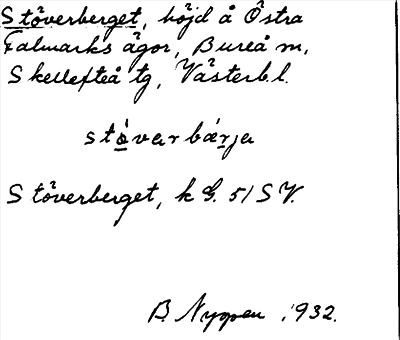 Stöverberget, höjd å Östra
Falmarks ägor, Bureå m,
Skellefteå tg, Västerb.l.
stòvarbárja
Stöverberget, k G. 51 SV.
B. Nygren 1932.